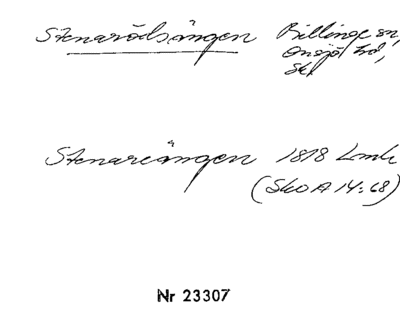 Stenarödsängen Billinge sn,
Onsjö hd,
Sk
Stenareängen 1818 Lmk
(SkoA 14:68)
Nr 23307